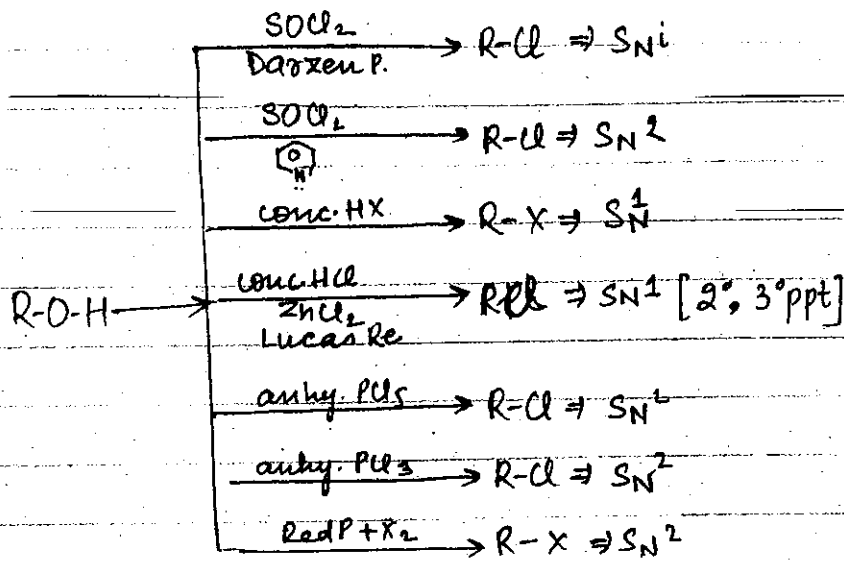 SOCl₂
Darzen P. → R-Cl ⇒ SNi
SOCl₂
N → R-Cl ⇒ SN2
conc. HX → R-X ⇒ SN1
R-O-H → conc. HCl
ZnCl₂ → RCl ⇒ SN1 [2°, 3° ppt]
Lucas Re
anhy. PCl5 → R-Cl ⇒ SN
anhy. PCl3 → R-Cl ⇒ SN2
Red P + X₂ → R-X ⇒ SN2